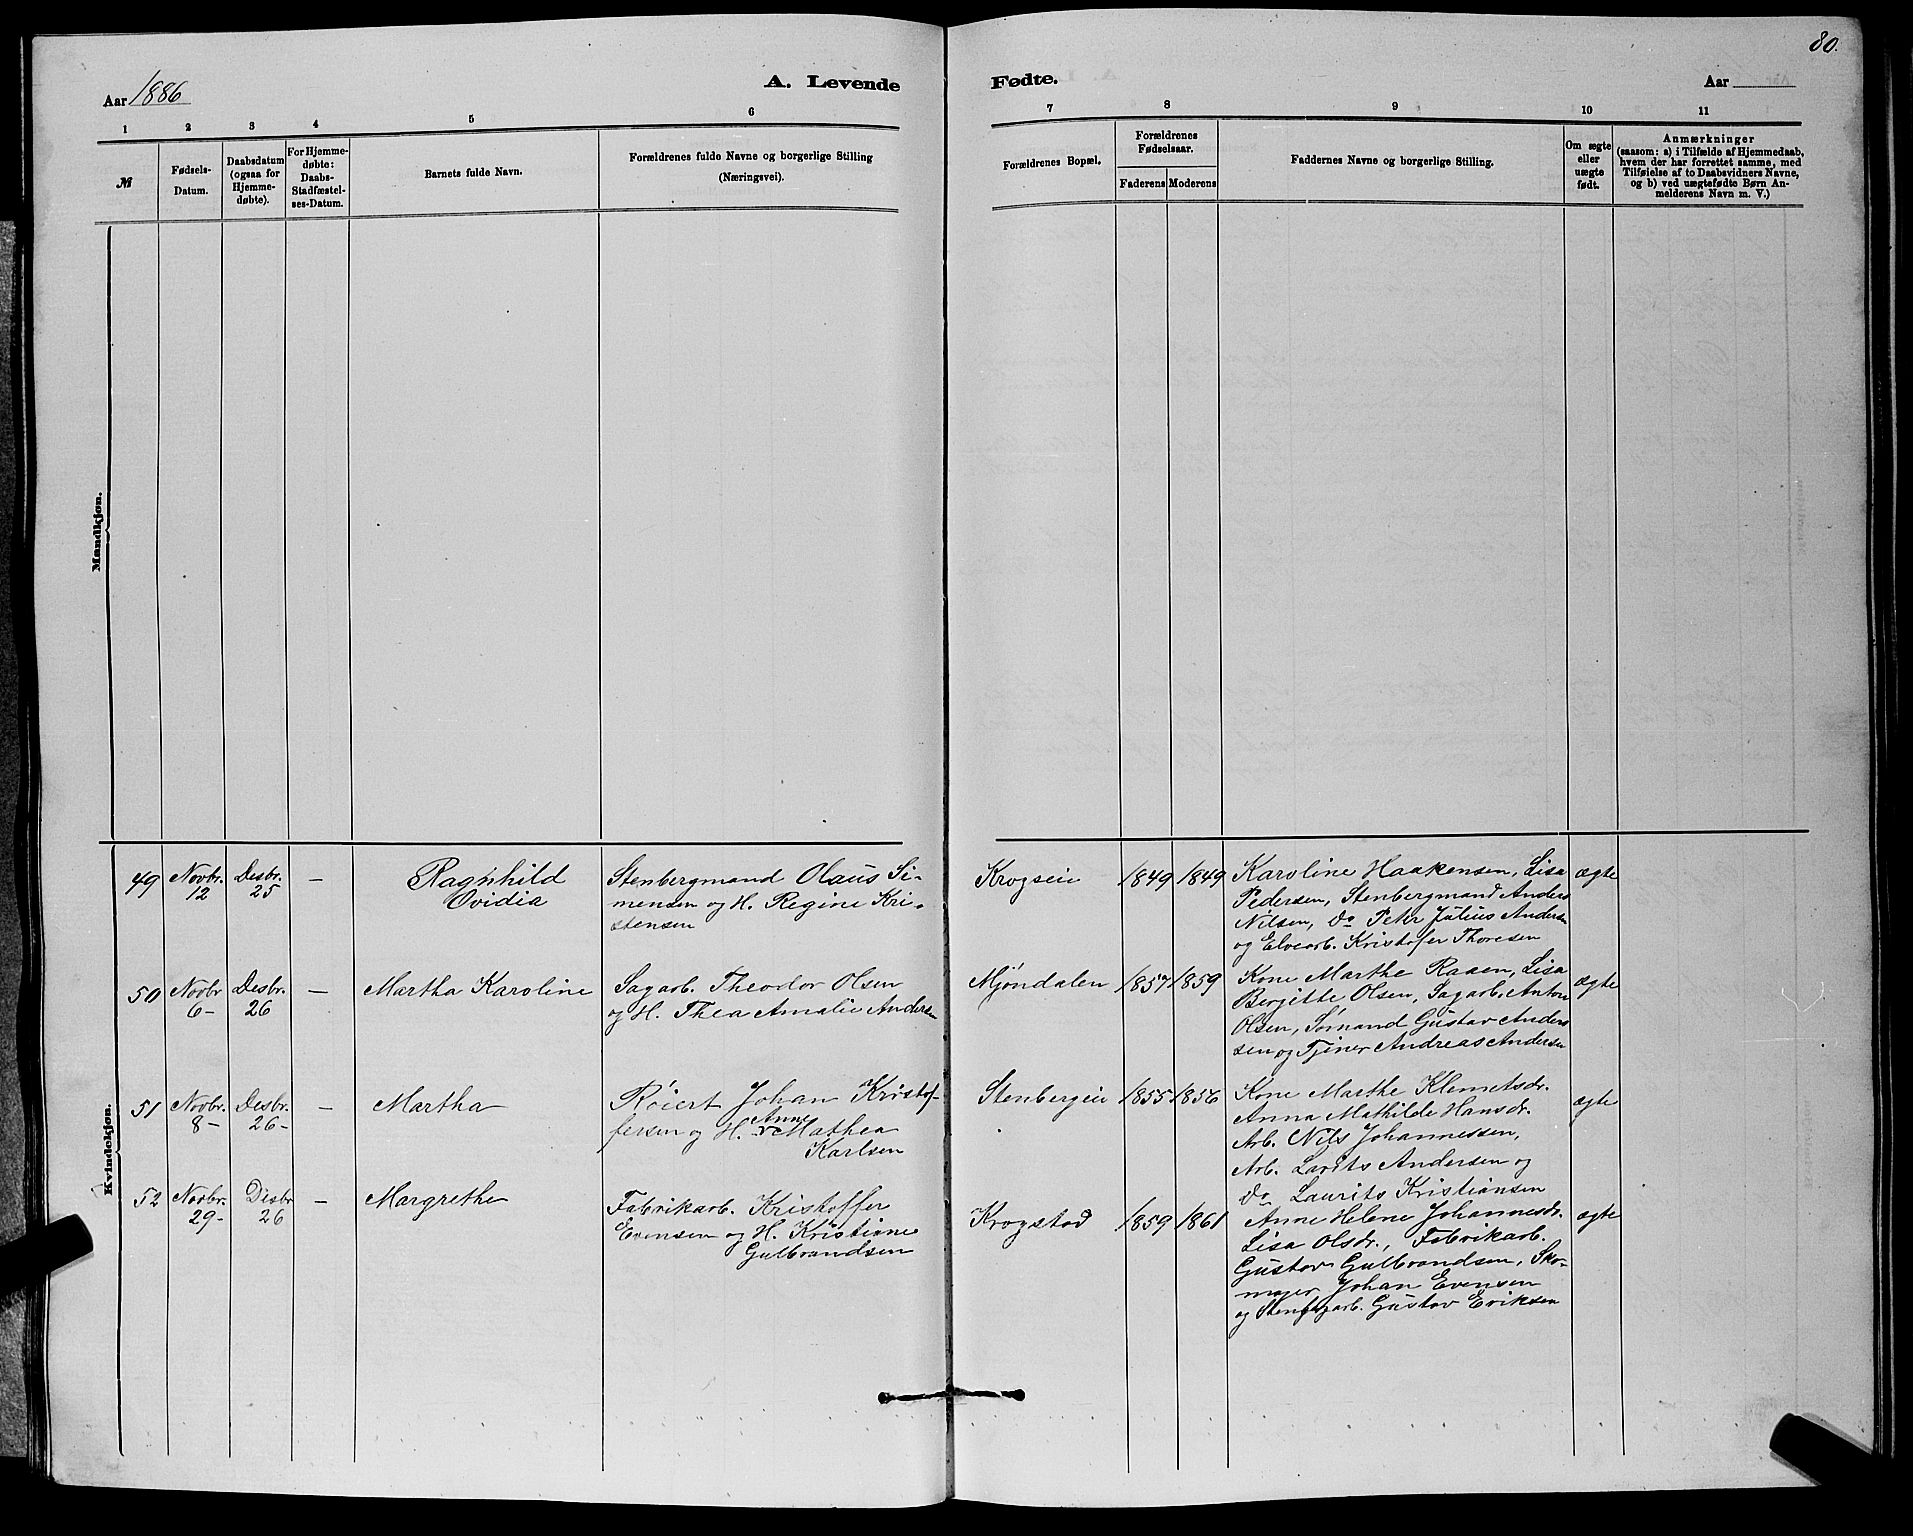 80.
Aar 1886
A. Levende
Fødte.
Aar
1 2 3 4 5 6 7 8 9 10 11
№
Fødsels-
Datum.
Daabsdatum
(ogsaa for
Hjemme-
døbte).
For Hjemme-
døbte:
Daabs-
Stadfæstel-
ses-Datum.
Barnets fulde Navn.
Forældrenes fulde Navne og borgerlige Stilling
(Næringsvei).
Forældrenes Bopæl.
Forældrenes
Fødselsaar.
Faderens Moderens
Faddernes Navne og borgerlige Stilling.
Om ægte
eller
uægte
født.
Anmærkninger
(saasom: a) i Tilfælde af Hjemmedaab,
hvem der har forrettet samme, med
Tilføielse af to Daabsvidners Navne,
og b) ved uægtefødte Børn An-
melderens Navn m. V.)
Mandkjøn.
Kvindekjøn.
49
Novbr.
12
Desbr.
25
—
Ragnhild
Ovidia
Stenbergmand Olaus Si-
mensen og H. Regine Kri-
stensen
Krogseie
1849
1849
Karoline Haakensen, Lisa
Pedersen, Stenbergmand Anders
Nilsen, do Petr Julius Andersen
og Elvearb. Kristofer Thoresen
ægte
50
Novbr
6-
Desbr.
26
—
Martha Karoline
Sagarb. Theodor Olsen
og H. Thea Amalie Andersen
Mjøndalen
1857
1859
Kone Marthe Raaen, Lisa
Bergitte Olsen, Sagarb. Anton
Olsen, Sømand Gustav Ander-
sen og Tjener Andreas Andersen
ægte
51
Novbr.
8-
Desbr.
26-
—
Martha
Røiert Johan Kristof-
fersen og H. Anne Mathea
Karlsen
Stenbergeie
1855
1856
Kone Marthe Klemetsdr.
Anna Mathilde Hansdr.
Arb. Nils Johannessen,
Arb. Larits Andersen og
do Laurits Kristiansen
ægte
52
Novbr.
29-
Desbr
26
—
Margrethe
Fabrikarb. Kristoffer
Evensen og H. Kristiane
Gulbrandsen
Krogstad
1859
1861
Anne Helene Johannesdr.
Lisa Olsdr., Fabrikarb.
Gustav Gulbrandsen, Sko-
mager Johan Evensen
og Gustav Eriksen
ægte